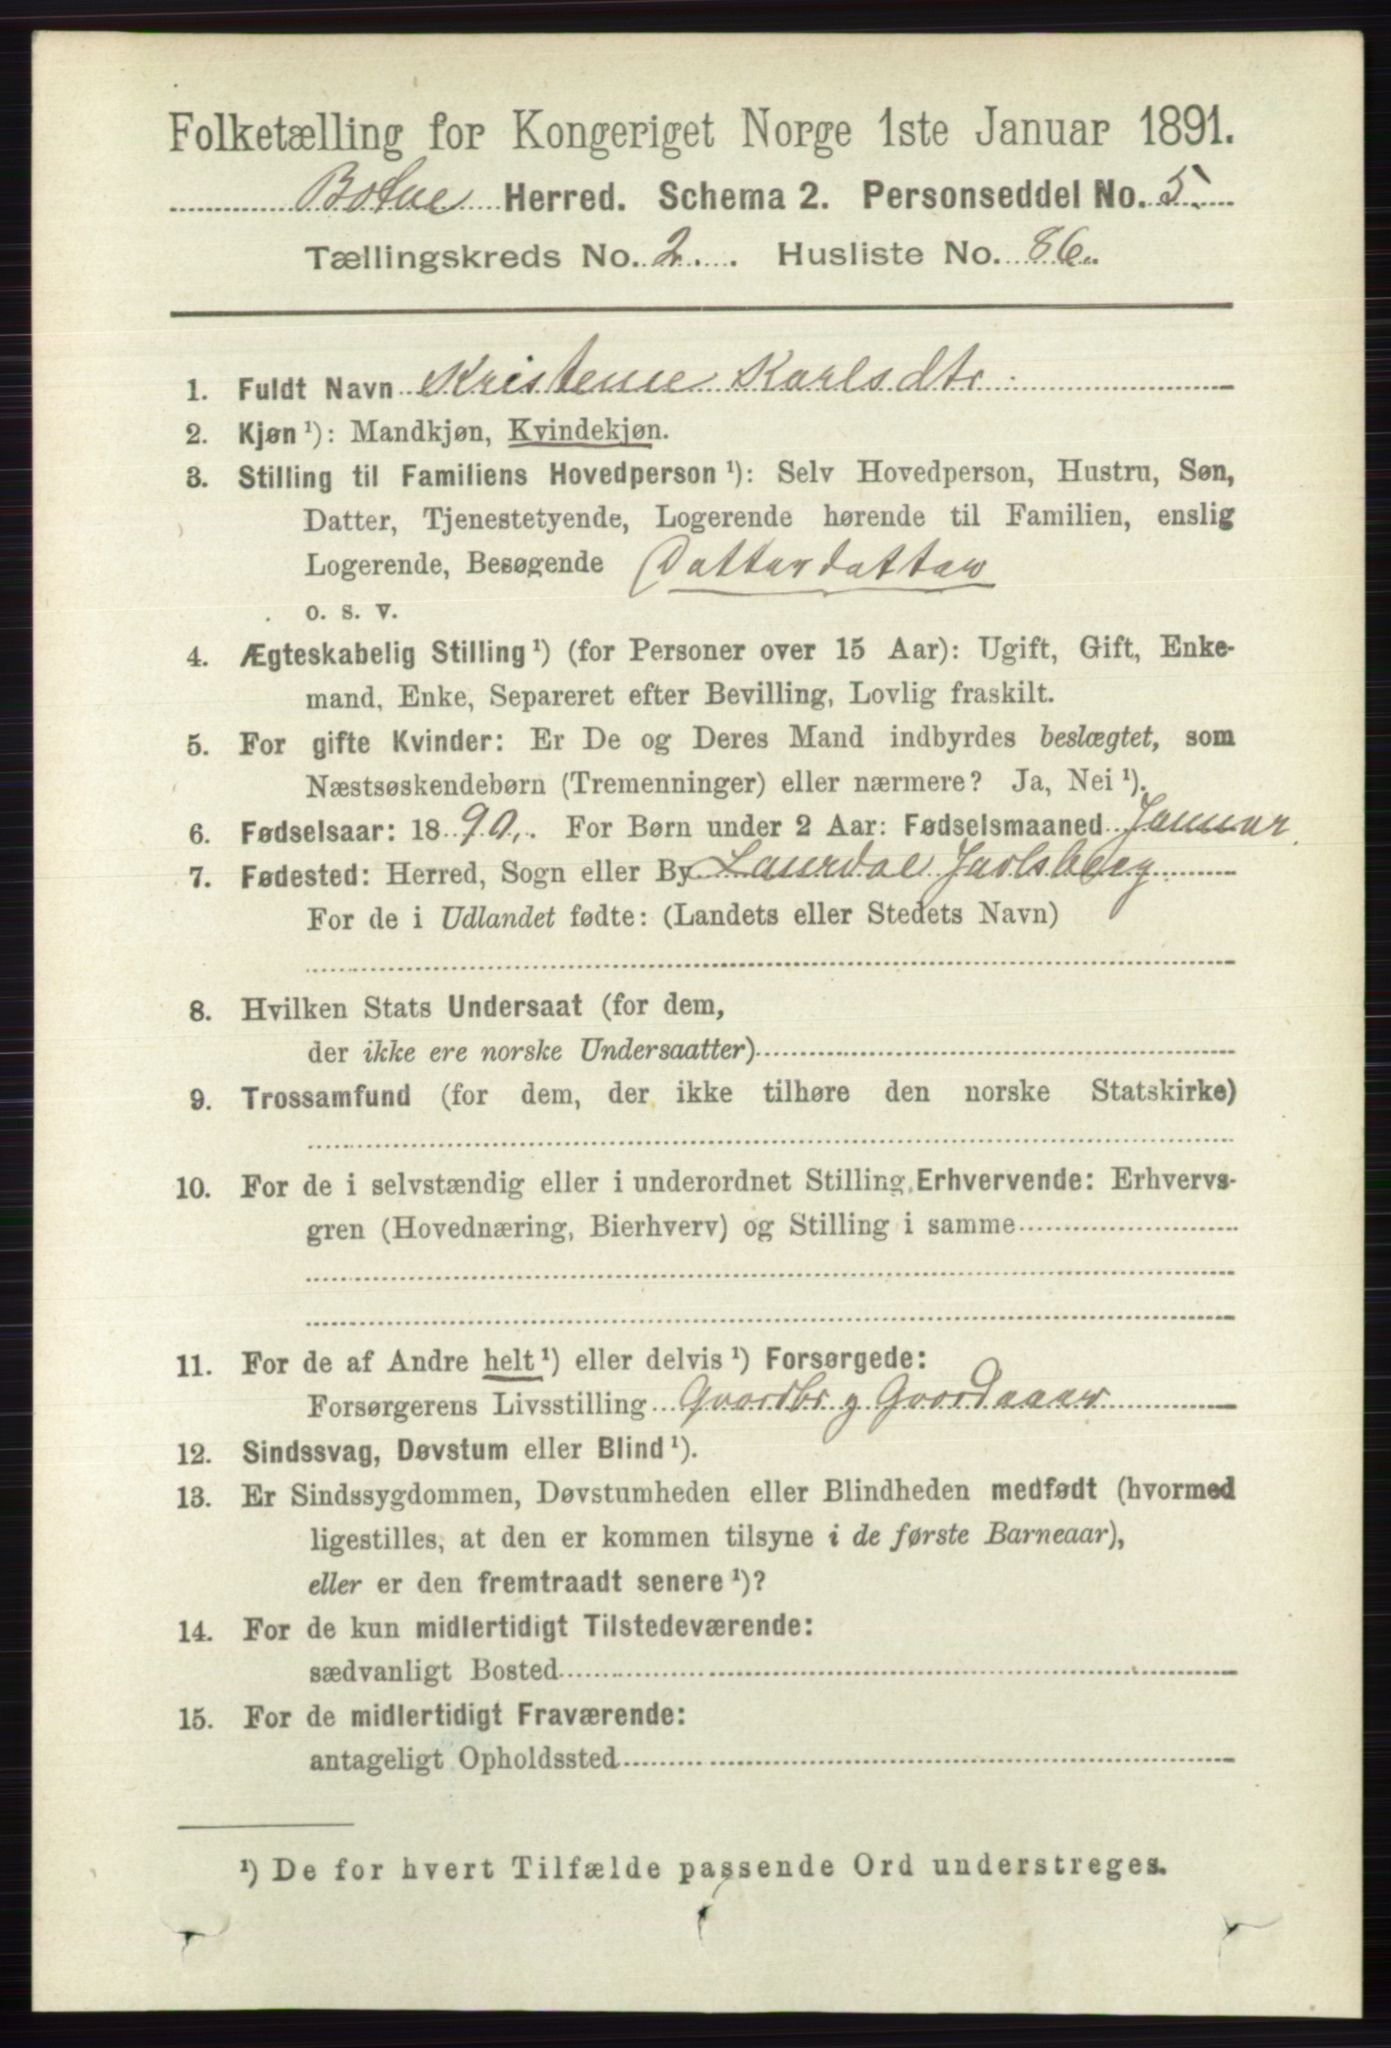 Folketælling for Kongeriget Norge 1ste Januar 1891.
Botne Herred. Schema 2. Personseddel No. 5.
Tællingskreds No. 2. Husliste No. 86.
1. Fuldt Navn Kristine Karlsdtr.
2. Kjøn ¹): Mandkjøn, Kvindekjøn.
3. Stilling til Familiens Hovedperson ¹): Selv Hovedperson, Hustru, Søn,
Datter, Tjenestetyende, Logerende hørende til Familien, enslig
Logerende, Besøgende Datterdatter
o. s. v.
4. Ægteskabelig Stilling ¹) (for Personer over 15 Aar): Ugift, Gift, Enke-
mand, Enke, Separeret efter Bevilling, Lovlig fraskilt.
5. For gifte Kvinder: Er De og Deres Mand indbyrdes beslægtet, som
Næstsøskendebørn (Tremenninger) eller nærmere? Ja, Nei ¹).
6. Fødselsaar: 1890. For Børn under 2 Aar: Fødselsmaaned Januar.
7. Fødested: Herred, Sogn eller By Laurdal Jarlsberg
For de i Udlandet fødte: (Landets eller Stedets Navn)
8. Hvilken Stats Undersaat (for dem,
der ikke ere norske Undersaatter)
9. Trossamfund (for dem, der ikke tilhøre den norske Statskirke)
10. For de i selvstændig eller i underordnet Stilling Erhvervende: Erhvervs-
gren (Hovednæring, Bierhverv) og Stilling i samme
11. For de af Andre helt ¹) eller delvis ¹) Forsørgede:
Forsørgerens Livsstilling Gaardbr
12. Sindssvag, Døvstum eller Blind ¹).
13. Er Sindssygdommen, Døvstumheden eller Blindheden medfødt (hvormed
ligestilles, at den er kommen tilsyne i de første Barneaar),
eller er den fremtraadt senere ¹)?
14. For de kun midlertidigt Tilstedeværende:
sædvanligt Bosted
15. For de midlertidigt Fraværende:
antageligt Opholdssted
¹) De for hvert Tilfælde passende Ord understreges.